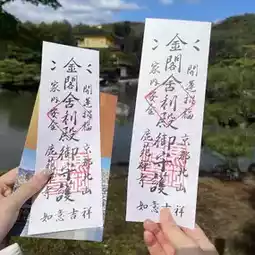 開運招福
金閣舎利殿御守護
家内安全
京都北山
鹿苑禅寺
如意吉祥
開運招福
金閣舎利殿御守護
家内安全
京都北山
鹿苑禅寺
如意吉祥